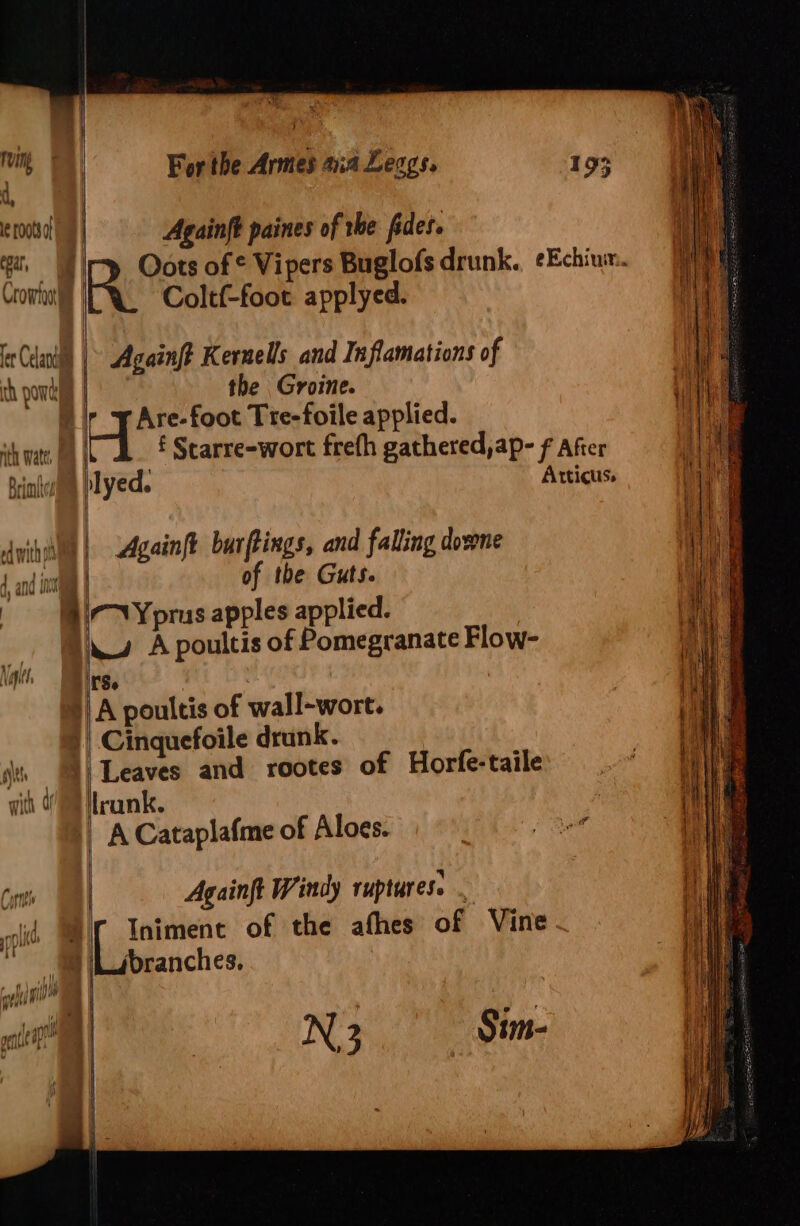 For the Armes and Leggs. 193
Againſt paines of the ſides.
ROots of e Vipers Bugloſs drunk. e Echium.
Coltſ-foot applyed.
Againſt Kernells and Inflamations of
the Groine.
HAre-foot Tre-foile applied.
f Starre-wort freſh gathered, ap- f After
plyed. Atticus.
Againſt burſtings, and falling downe
of the Guts.
CYprus apples applied.
A poultis of Pomegranate Flow-
rs.
A poultis of wall-wort.
Cinquefoile drunk.
Leaves and rootes of Horſe-taile
drunk.
A Cataplaſme of Aloes.
Againſt Windy ruptures.
LIniment of the aſhes of Vine-
branches.
N 3 Sim-